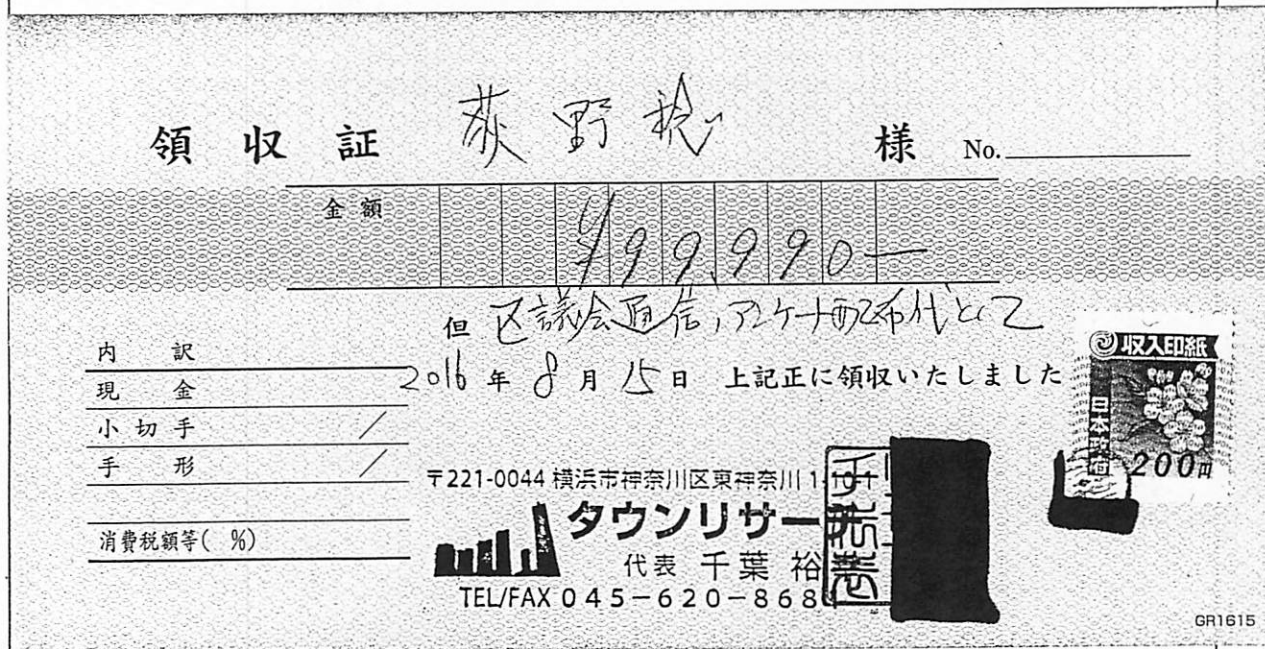 領収証 荻野稔 様 No.
金額 ¥99,990—
但 区議会通信,アンケート配布代として
内訳
2016年8月15日 上記正に領収いたしました
現金
小切手 /
手形 /
消費税額等( %)
収入印紙
日本政府
200円
〒221-0044 横浜市神奈川区東神奈川
タウンリサー
代表 千葉 裕
TEL/FAX 045-620-868
GR1615